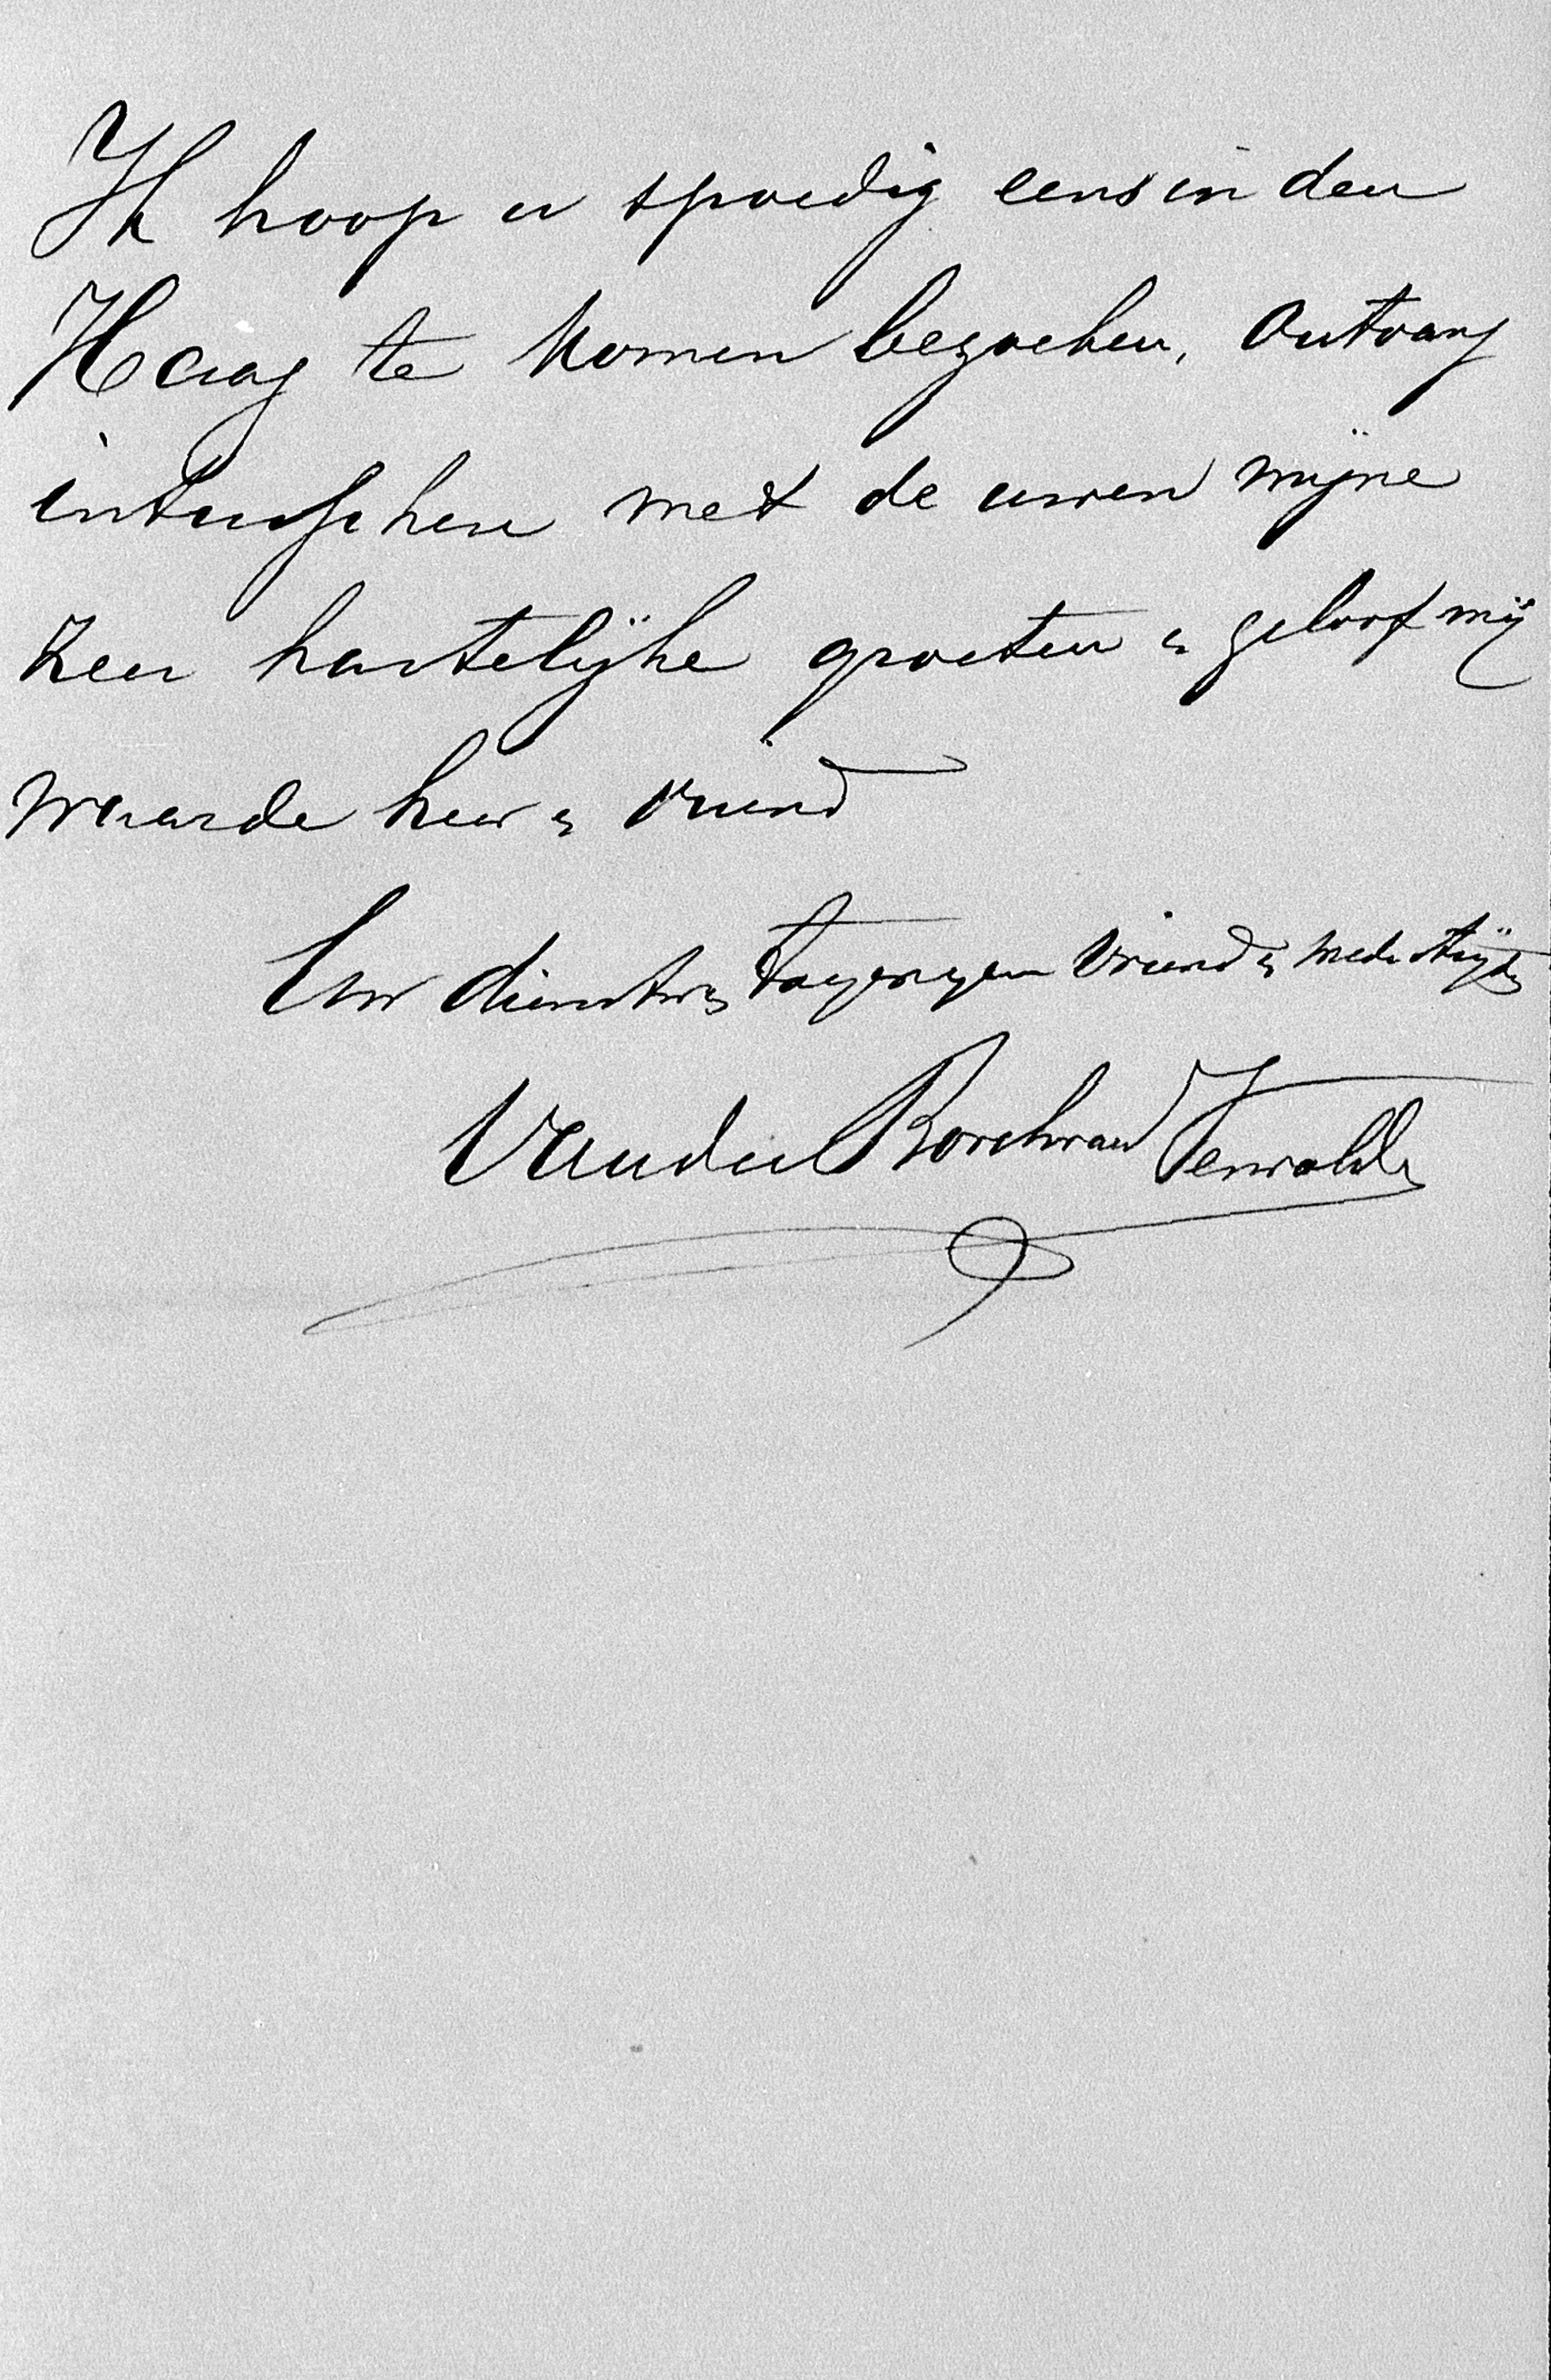 Ik hoop u spoedig eens in den
Haag te komen bezoeken. Ontvang
intusschen met de uwen mijne
zeer hartelijke groeten en geloof mij
waarde heer en vriend
Uw dienstw. en toegenegen vriend en medestrijder
Van der Borch van Verwolde